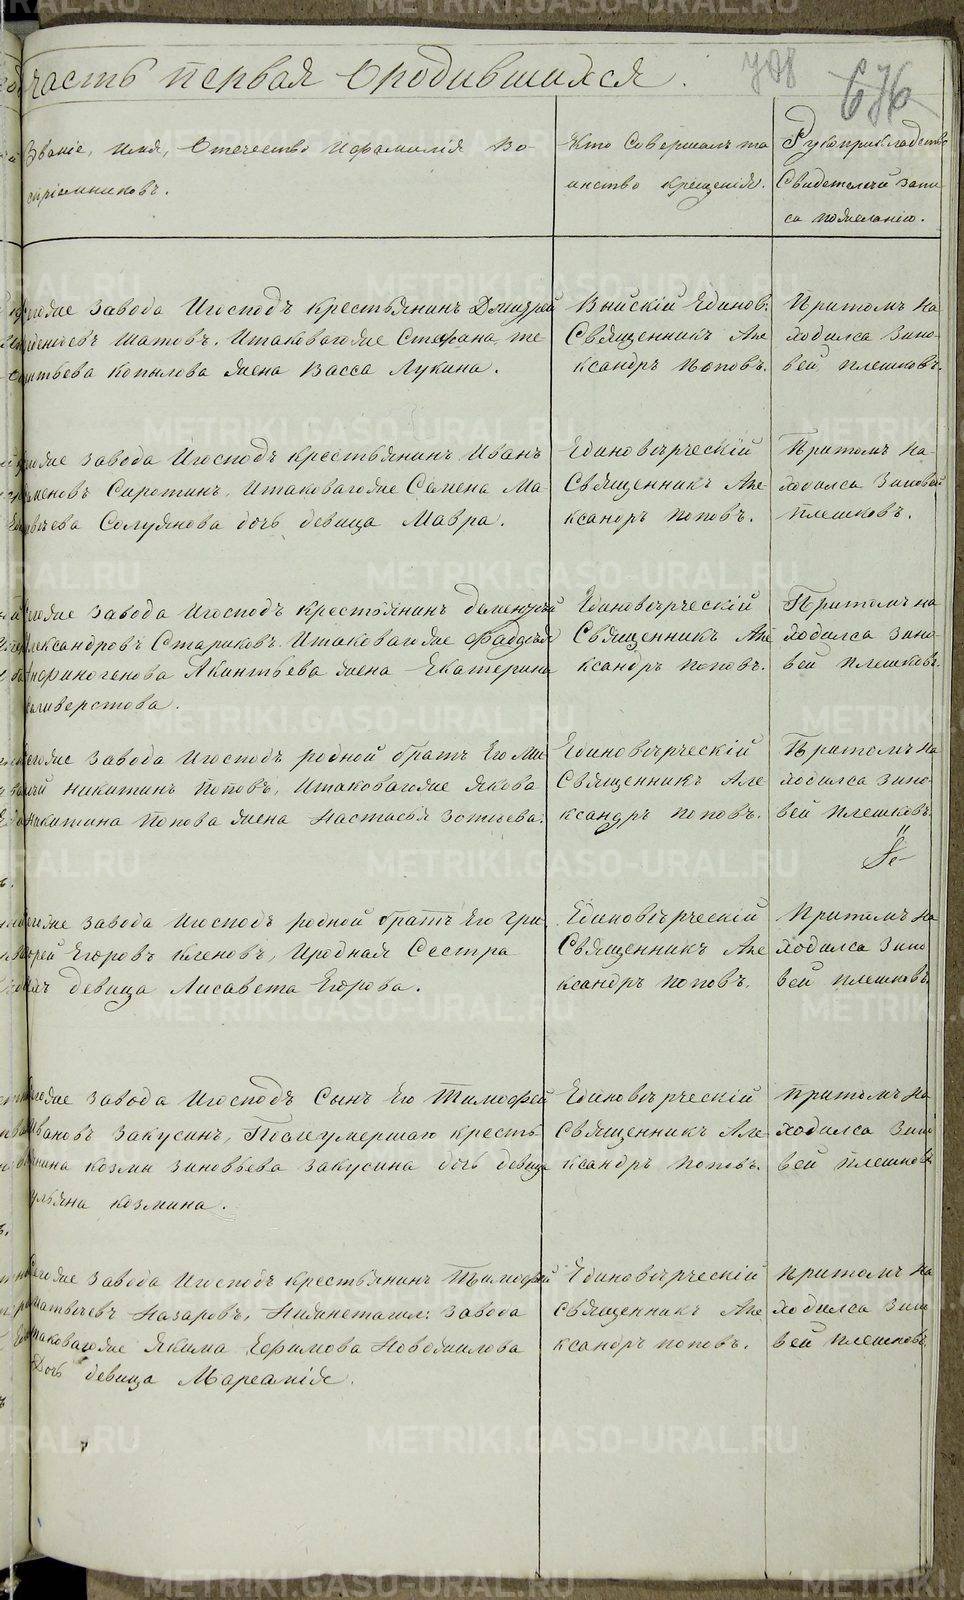 часть первая о родившихся.
676
Званіе, имя, Отечество и фамилія Во-
спріемниковъ.
Кто Совершалъ та
инство крещенія.
Рукоприкладство
Свидетелей запи
си пожеланію.
тогоже завода Игосподъ крестьянинъ Дмитрей
Шатовъ. Итаковагоже Стефана те
рентьева копылова жена Васса Лукина.
Выйскій Единов.
Священникъ Але
ксандръ Поповъ.
Притомъ на
ходился Зино-
вей Плешковъ.
тогоже завода Игосподъ крестьянинъ Иванъ
Семеновъ Сиротинъ, Итаковагоже Семена Ма
твѣева Солуянова дочь девица Мавра.
Единоверческій
Священникъ Але
ксандръ Поповъ.
Притомъ на-
ходился Зиновей
Плешковъ.
тогоже завода Игосподъ крестьянинъ Дементей
Александровъ Стариковъ. Итаковагоже Фаддея
Анфиногенова Акинтьева жена Екатерина
Селиверстова.
Единоверческій
Священникъ Але
ксандръ Поповъ.
Притомъ на
ходился Зино-
вей Плешковъ.
тогоже завода Игосподъ родной братъ Его Ми
Никитинъ Поповъ, Итаковагоже Якова
Никитина Попова жена Настасья Зотеева.
Единоверческій
Священникъ Але
ксандръ Поповъ.
Притомъ на
ходился Зино-
вей Плешковъ.
тогоже завода Игосподъ родной братъ Его Гри
горей Егоровъ Кленовъ, Иродная Сестра
девица Лисавета Егорова.
Единоверческій
Священникъ Але
ксандръ Поповъ.
Притомъ на
ходился Зино
вей Плешковъ
тогоже завода Игосподъ Сынъ Его Тимофей
Ивановъ Закусинъ, Послеумершаго кресть
янина козмы Зиновьева Закусина дочь девица
Ульяна козмина.
Единоверческій
Священникъ Але
ксандръ Поповъ.
Притомъ на
ходился Зино
вей Плешковъ
тогоже завода Игосподъ крестьянинъ Тимофей
Матвѣевъ Назаровъ, Нижнетагил: завода
таковагоже Якима Ефимова Новожилова
Дочь девица Мареамія.
Единоверческій
Священникъ Але
ксандръ Поповъ.
Притомъ на
ходился Зино
вей Плешковъ.